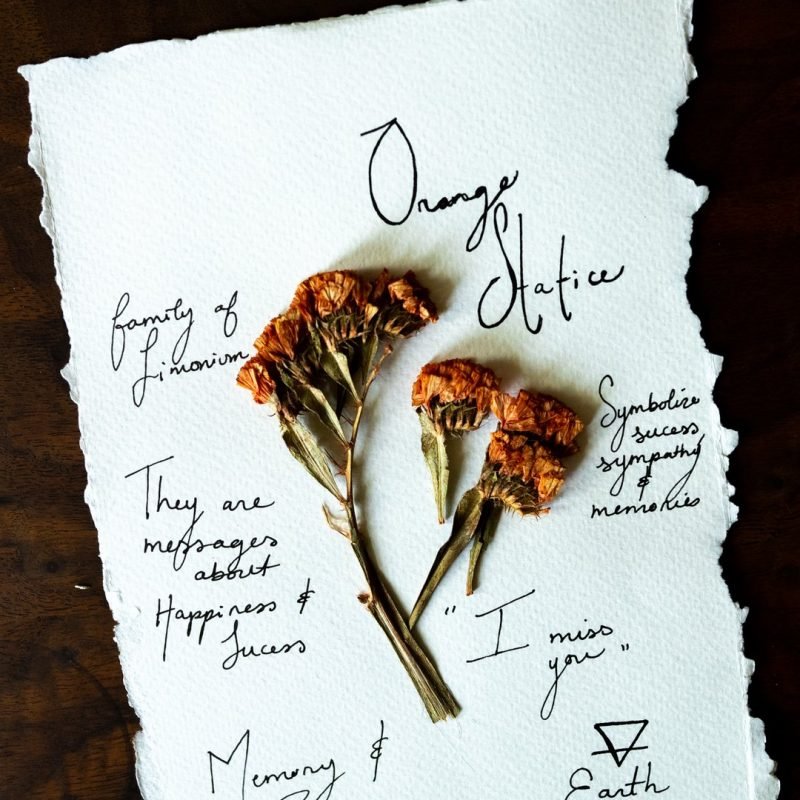 Orange
Statice
family of
Limonium
Symbolize
sucess
sympathy
&
memories
They are
messages
about
Happiness &
Sucess
" I miss
you "
Memory &
Earth